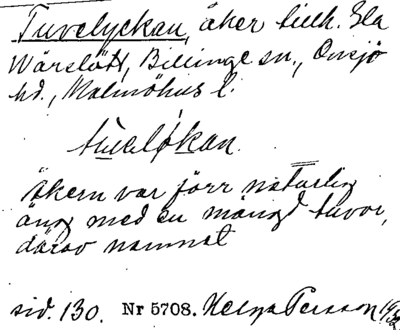 Tuvelyckan, åker tillh. Ella
Wärslätt, Billinge sn., Onsjö
hd., Malmöhus l.
tuvelökan.
Åkern var förr naturlig
äng med en mängd tuvor,
därav namnet
sid. 130. Nr 5708. Helga Persson 1932